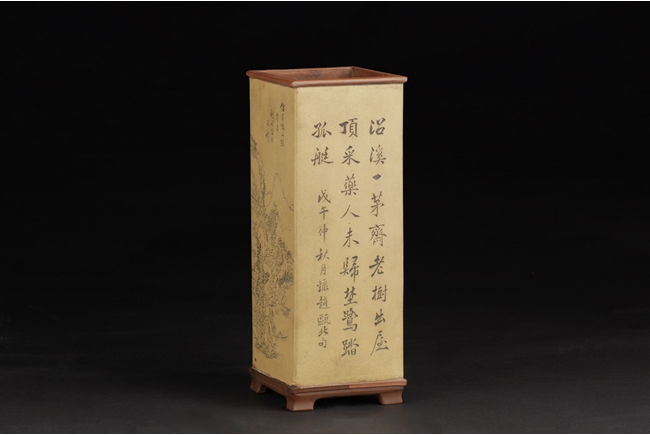 沿溪一茅齋老樹出屋
頂采藥人未歸埜鷺踏
孤艇
戊午仲秋月趙甌北句